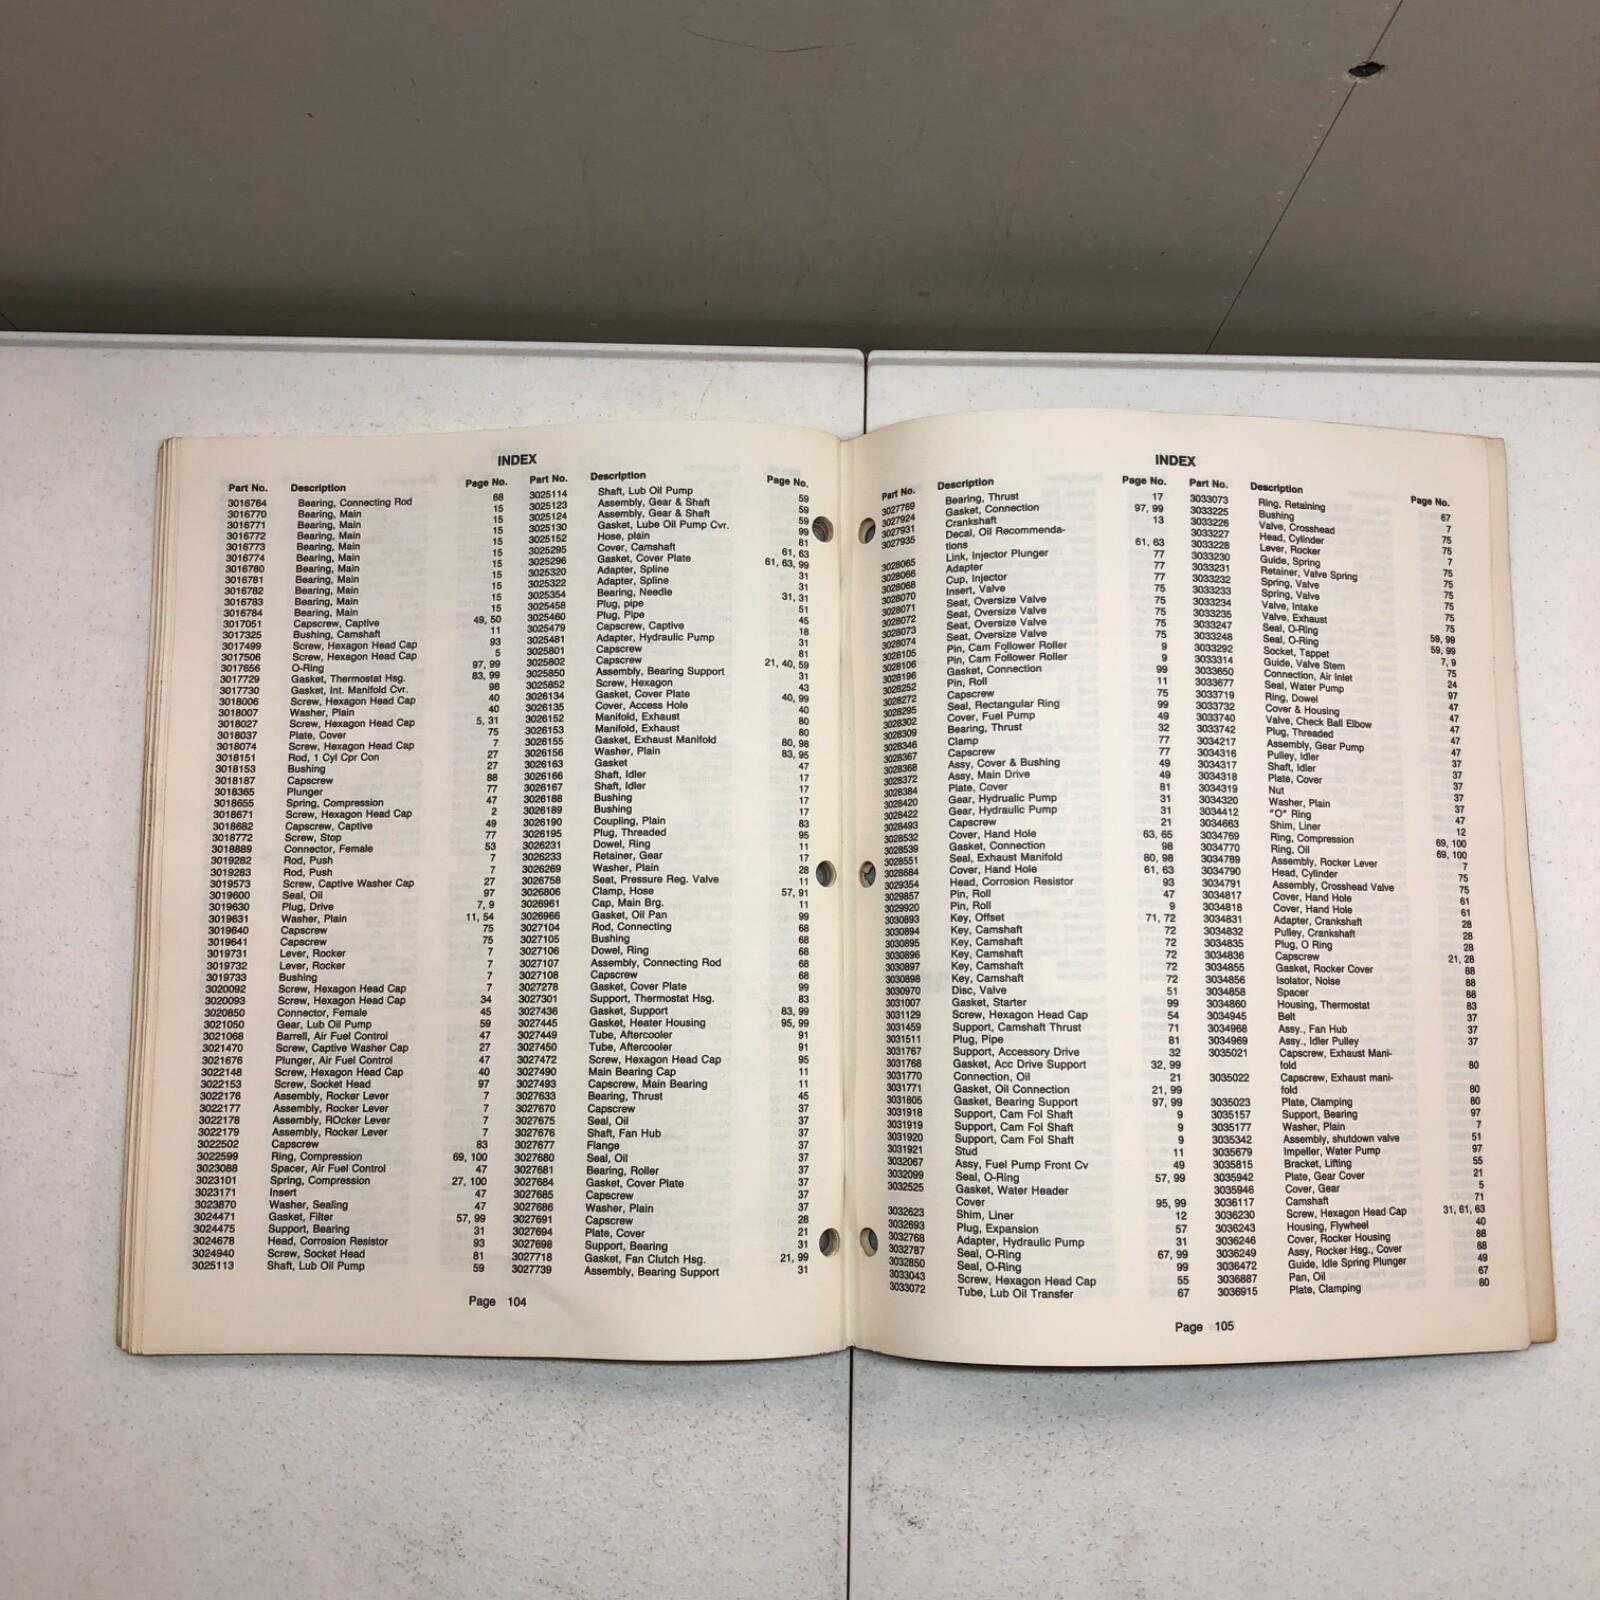 INDEX
Part No. Description Page No.
3016764 Bearing, Connecting Rod 68
3016770 Bearing, Main 15
3016771 Bearing, Main 15
3016772 Bearing, Main 15
3016773 Bearing, Main 15
3016774 Bearing, Main 15
3016780 Bearing, Main 15
3016781 Bearing, Main 15
3016782 Bearing, Main 15
3016783 Bearing, Main 15
3016784 Bearing, Main 15
3017051 Capscrew, Captive 49, 50
3017325 Bushing, Camshaft 11
3017499 Screw, Hexagon Head Cap 93
3017506 Screw, Hexagon Head Cap 5
3017656 O-Ring 97, 99
3017729 Gasket, Thermostat Hsg. 83, 99
3017730 Gasket, Int. Manifold Cvr. 98
3018006 Screw, Hexagon Head Cap 40
3018007 Washer, Plain 40
3018027 Screw, Hexagon Head Cap 5, 31
3018037 Plate, Cover 75
3018074 Screw, Hexagon Head Cap 7
3018151 Rod, 1 Cyl Cpr Con 27
3018153 Bushing 27
3018187 Capscrew 88
3018365 Plunger 77
3018655 Spring, Compression 47
3018671 Screw, Hexagon Head Cap 2
3018682 Capscrew, Captive 49
3018772 Screw, Stop 77
3018889 Connector, Female 53
3019282 Rod, Push 7
3019283 Rod, Push 7
3019573 Screw, Captive Washer Cap 27
3019600 Seal, Oil 97
3019630 Plug, Drive 7, 9
3019631 Washer, Plain 11, 54
3019640 Capscrew 75
3019641 Capscrew 75
3019731 Lever, Rocker 7
3019732 Lever, Rocker 7
3019733 Bushing 7
3020092 Screw, Hexagon Head Cap 7
3020093 Screw, Hexagon Head Cap 34
3020850 Connector, Female 45
3021050 Gear, Lub Oil Pump 59
3021068 Barrell, Air Fuel Control 47
3021470 Screw, Captive Washer Cap 27
3021676 Plunger, Air Fuel Control 47
3022148 Screw, Hexagon Head Cap 40
3022153 Screw, Socket Head 97
3022176 Assembly, Rocker Lever 7
3022177 Assembly, Rocker Lever 7
3022178 Assembly, ROcker Lever 7
3022179 Assembly, Rocker Lever 7
3022502 Capscrew 83
3022599 Ring, Compression 69, 100
3023088 Spacer, Air Fuel Control 47
3023101 Spring, Compression 27, 100
3023171 Insert 47
3023870 Washer, Sealing 47
3024471 Gasket, Filter 57, 99
3024475 Support, Bearing 31
3024678 Head, Corrosion Resistor 93
3024940 Screw, Socket Head 81
3025113 Shaft, Lub Oil Pump 59
Part No. Description Page No.
3025114 Shaft, Lub Oil Pump 59
3025123 Assembly, Gear & Shaft 59
3025124 Assembly, Gear & Shaft 59
3025130 Gasket, Lube Oil Pump Cvr. 99
3025152 Hose, plain 81
3025295 Cover, Camshaft 61, 63
3025296 Gasket, Cover Plate 61, 63, 99
3025320 Adapter, Spline 31
3025322 Adapter, Spline 31
3025354 Bearing, Needle 31, 31
3025458 Plug, pipe 51
3025460 Plug, Pipe 45
3025479 Capscrew, Captive 18
3025481 Adapter, Hydraulic Pump 31
3025801 Capscrew 81
3025802 Capscrew 21, 40, 59
3025850 Assembly, Bearing Support 31
3025852 Screw, Hexagon 43
3026134 Gasket, Cover Plate 40, 99
3026135 Cover, Access Hole 40
3026152 Manifold, Exhaust 80
3026153 Manifold, Exhaust 80
3026155 Gasket, Exhaust Manifold 80, 98
3026156 Washer, Plain 83, 95
3026163 Gasket 47
3026166 Shaft, Idler 17
3026167 Shaft, Idler 17
3026188 Bushing 17
3026189 Bushing 17
3026190 Coupling, Plain 83
3026195 Plug, Threaded 95
3026231 Dowel, Ring 11
3026233 Retainer, Gear 17
3026269 Washer, Plain 28
3026758 Seat, Pressure Reg. Valve 11
3026806 Clamp, Hose 57, 91
3026961 Cap, Main Brg. 11
3026966 Gasket, Oil Pan 99
3027104 Rod, Connecting 68
3027105 Bushing 68
3027106 Dowel, Ring 68
3027107 Assembly, Connecting Rod 68
3027108 Capscrew 68
3027278 Gasket, Cover Plate 99
3027301 Support, Thermostat Hsg. 83
3027436 Gasket, Support 83, 99
3027445 Gasket, Heater Housing 95, 99
3027449 Tube, Aftercooler 91
3027450 Tube, Aftercooler 91
3027472 Screw, Hexagon Head Cap 95
3027490 Main Bearing Cap 11
3027493 Capscrew, Main Bearing 11
3027633 Bearing, Thrust 45
3027670 Capscrew 37
3027675 Seal, Oil 37
3027676 Shaft, Fan Hub 37
3027677 Flange 37
3027680 Seal, Oil 37
3027681 Bearing, Roller 37
3027684 Gasket, Cover Plate 37
3027685 Capscrew 37
3027686 Washer, Plain 37
3027691 Capscrew 28
3027694 Plate, Cover 21
3027698 Support, Bearing 31
3027718 Gasket, Fan Clutch Hsg. 21, 99
3027739 Assembly, Bearing Support 31
Page 104
INDEX
Part No. Description Page No.
3027769 Bearing, Thrust 17
3027924 Gasket, Connection 97, 99
3027931 Crankshaft 13
3027935 Decal, Oil Recommenda-
tions 61, 63
3028065 Link, Injector Plunger 77
3028066 Adapter 77
3028068 Cup, Injector 77
3028070 Insert, Valve 75
3028071 Seat, Oversize Valve 75
3028072 Seat, Oversize Valve 75
3028073 Seat, Oversize Valve 75
3028074 Seat, Oversize Valve 75
3028105 Pin, Cam Follower Roller 9
3028106 Pin, Cam Follower Roller 9
3028196 Gasket, Connection 99
3028252 Pin, Roll 11
3028272 Capscrew 75
3028295 Seal, Rectangular Ring 99
3028302 Cover, Fuel Pump 49
3028309 Bearing, Thrust 32
3028346 Clamp 77
3028367 Capscrew 77
3028368 Assy, Cover & Bushing 49
3028372 Assy, Main Drive 49
3028384 Plate, Cover 81
3028420 Gear, Hydrualic Pump 31
3028422 Gear, Hydraulic Pump 31
3028493 Capscrew 21
3028532 Cover, Hand Hole 63, 65
3028539 Gasket, Connection 98
3028551 Seal, Exhaust Manifold 80, 98
3028684 Cover, Hand Hole 61, 63
3029354 Head, Corrosion Resistor 93
3029857 Pin, Roll 47
3029920 Pin, Roll 9
3030893 Key, Offset 71, 72
3030894 Key, Camshaft 72
3030895 Key, Camshaft 72
3030896 Key, Camshaft 72
3030897 Key, Camshaft 72
3030898 Key, Camshaft 72
3030970 Disc, Valve 51
3031007 Gasket, Starter 99
3031129 Screw, Hexagon Head Cap 54
3031459 Support, Camshaft Thrust 71
3031511 Plug, Pipe 81
3031767 Support, Accessory Drive 32
3031768 Gasket, Acc Drive Support 32, 99
3031770 Connection, Oil 21
3031771 Gasket, Oil Connection 21, 99
3031805 Gasket, Bearing Support 97, 99
3031918 Support, Cam Fol Shaft 9
3031919 Support, Cam Fol Shaft 9
3031920 Support, Cam Fol Shaft 9
3031921 Stud 11
3032067 Assy, Fuel Pump Front Cv 49
3032099 Seal, O-Ring 57, 99
3032525 Gasket, Water Header
Cover 95, 99
3032623 Shim, Liner 12
3032693 Plug, Expansion 57
3032768 Adapter, Hydraulic Pump 31
3032787 Seal, O-Ring 67, 99
3032850 Seal, O-Ring 99
3033043 Screw, Hexagon Head Cap 55
3033072 Tube, Lub Oil Transfer 67
Part No. Description Page No.
3033073 Ring, Retaining 67
3033225 Bushing 7
3033226 Valve, Crosshead 75
3033227 Head, Cylinder 75
3033228 Lever, Rocker 7
3033230 Guide, Spring 75
3033231 Retainer, Valve Spring 75
3033232 Spring, Valve 75
3033233 Spring, Valve 75
3033234 Valve, Intake 75
3033235 Valve, Exhaust 75
3033247 Seal, O-Ring 59, 99
3033248 Seal, O-Ring 59, 99
3033292 Socket, Tappet 7, 9
3033314 Guide, Valve Stem 75
3033650 Connection, Air Inlet 24
3033677 Seal, Water Pump 97
3033719 Ring, Dowel 47
3033732 Cover & Housing 47
3033740 Valve, Check Ball Elbow 47
3033742 Plug, Threaded 47
3034217 Assembly, Gear Pump 47
3034316 Pulley, Idler 37
3034317 Shaft, Idler 37
3034318 Plate, Cover 37
3034319 Nut 37
3034320 Washer, Plain 37
3034412 "O" Ring 47
3034663 Shim, Liner 12
3034769 Ring, Compression 69, 100
3034770 Ring, Oil 69, 100
3034789 Assembly, Rocker Lever 7
3034790 Head, Cylinder 75
3034791 Assembly, Crosshead Valve 75
3034817 Cover, Hand Hole 61
3034818 Cover, Hand Hole 61
3034831 Adapter, Crankshaft 28
3034832 Pulley, Crankshaft 28
3034835 Plug, O Ring 28
3034836 Capscrew 21, 28
3034855 Gasket, Rocker Cover 88
3034856 Isolator, Noise 88
3034858 Spacer 88
3034860 Housing, Thermostat 83
3034945 Belt 37
3034968 Assy., Fan Hub 37
3034969 Assy., Idler Pulley 37
3035021 Capscrew, Exhaust Mani-
fold 80
3035022 Capscrew, Exhaust mani-
fold 80
3035023 Plate, Clamping 80
3035157 Support, Bearing 97
3035177 Washer, Plain 7
3035342 Assembly, shutdown valve 51
3035679 Impeller, Water Pump 97
3035815 Bracket, Lifting 55
3035942 Plate, Gear Cover 21
3035946 Cover, Gear 5
3036117 Camshaft 71
3036230 Screw, Hexagon Head Cap 31, 61, 63
3036243 Housing, Flywheel 40
3036246 Cover, Rocker Housing 88
3036249 Assy, Rocker Hsg., Cover 88
3036472 Guide, Idle Spring Plunger 49
3036887 Pan, Oil 67
3036915 Plate, Clamping 80
Page 105